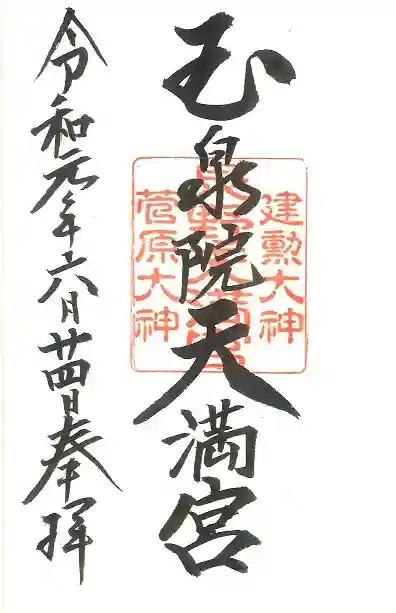 玉泉院天満宮
建勲大神
菅原大神
令和元年六月廿四日奉拝